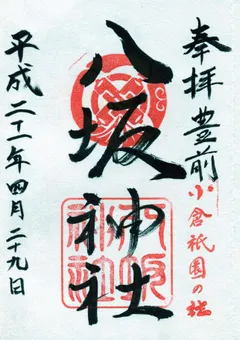 奉拝
豊前
小倉祇園の社
八坂神社
八坂
神社
平成二十一年四月二十九日